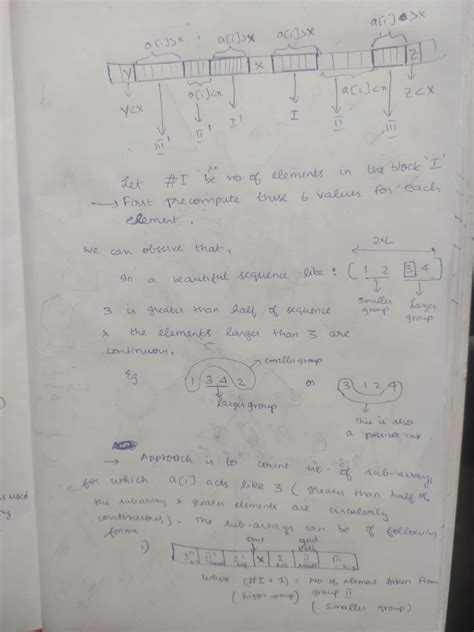 a[i]>x a[i]>x a[i]>x a[i]>x
y x z
y<x a[i]<x a[i]<x z<x
III' II' I' I II III
Let #I be no of elements in the block 'I'
→ First precompute these 6 values for each
element.
We can observe that,
2x
In a beautiful sequence like : [ 1 2 3 4 ]
smaller group larger group
3 is greater than half of sequence
& the elements larger than 3 are
continuous.
Eg 1 3 4 2 smaller group or 3 1 2 4
larger group
This is also
a possible case
→ Approach is to count no. of sub-arrays
for which a[i] acts like 3 ( greater than half of
the subarray & greater elements are circularly
continuous). The sub-arrays can be of following
form.
i) x I II
where (#I + 1) = No of element taken from
(bigger group) group II
(smaller group)